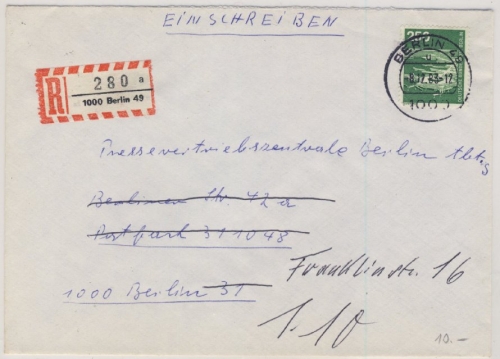 EINSCHREIBEN
250
BERLIN 49
-12
1000
R
280 a
1000 Berlin 49
Pressevertriebszentrale Berlin Abt.
Str. 42 a
Postfach 311048
1000 Berlin 31
Franklinstr. 16
1.10
10.-